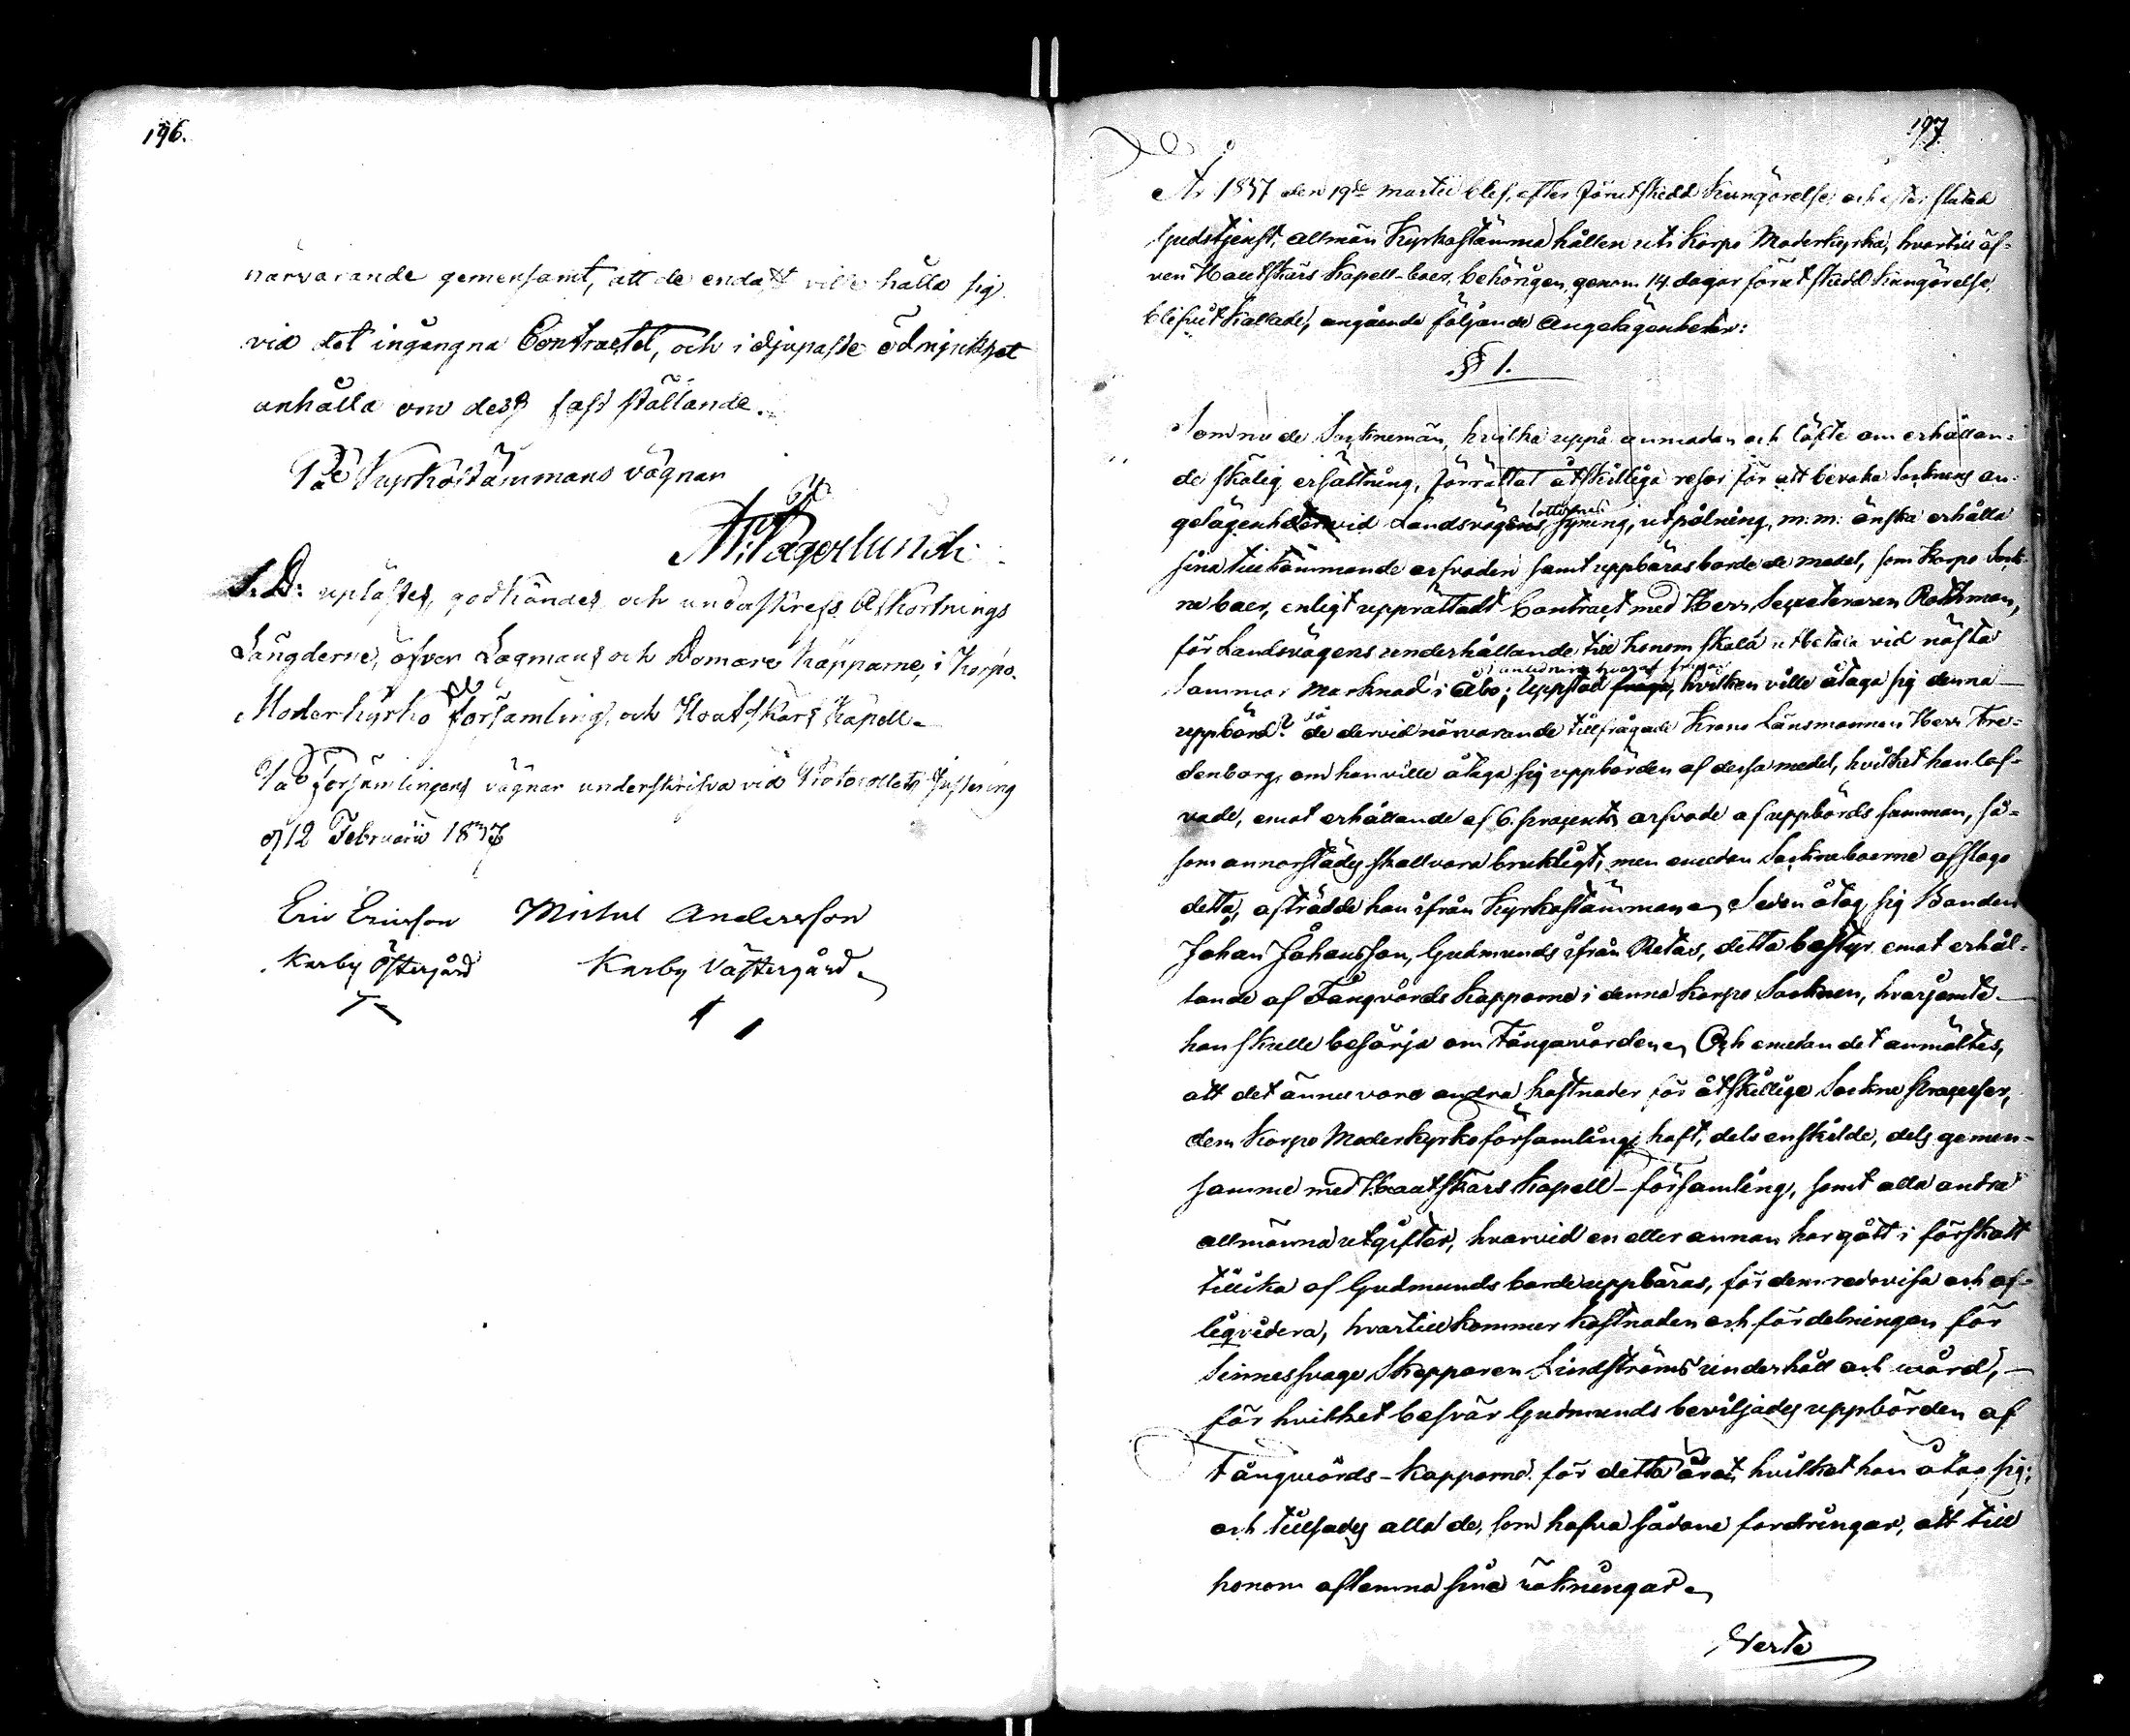 196.
närvarande gemensamt, att de endast ville hålla sig
vid det ingångna Contractet, och i djupaste ödmjukhet
anhålla om dess fast ställande.
På Kyrkostämmans vägnar
S. D: uplästes, godkändes och underskrefs Afkortnings
Längderne, öfver Lagmans och Domare Kapparne, i Korpo
Moderkyrko församling, och Houtskärs Kapell
På Församlingens vägnar underskrifva vid Protocollets justering
d 12 Februarii 1837
Eric Ericsson Michel Andersson
Karby Östergård Karby Västergård
197.
År 1837 den 19de martii blef, efter förut skedd Kungörelse, och efter slutad
Gudstjenst, allmän Kyrkostämma hållen uti Korpo Moderkyrka, hvartill äf-
ven Houtskärs Kapell-boer, behörigen, genom 14 dagar förut skedd kungörelse,
blifvit kallade, angående följande Angelägenheter:
§ 1.
Som nu de Socknemän, hvilka uppå anmodan och löfte om erhållan-
de skälig ersättning, förrättat åtskilliga resor för att bevaka Socknens an-
gelägenheter vid Landsvägens, syning, utpålning, m: m: önska erhålla
sina tillkommande arfvoden samt uppbäras borde de medel, som Korpo Sock-
neboer, enligt upprättadt Contract med Herr Secreteraren Rothman,
för Landsvägens underhållande till honom skola utbetala vid nästa
i anledning hvaraf frågan
Sommar Marknad i Åbo; Uppstod fråga, hvilken ville åtaga sig denna
uppbörd? då de dervid närvarande tillfrågade Krono Länsmannen Herr Fre-
denborg, om han ville åtaga sig uppbörden af dessa medel, hvilket han lof-
vade, emot erhållande af 6 procents arfvode af uppbörds summan, så-
som annorstädes skall vara brukligt; men emedan Sockneboerne afslogo
detta, afträdde han ifrån Kyrkostämman. Sedan åtog sig Bonden
Johan Johansson, Gudmunds ifrån Retais, detta bestyr emot erhål-
lande af Fångvårds Kapparne i denna Korpo Socknen, hvarjemte
han skulle besörja om Fångavården. Och emedan det anmältes,
att det ännu voro andra kostnader för åtskillige Sockne processer,
dem Korpo Moderkyrkoförsamling haft, dels enskilde, dels gemen-
samme med Houtskärs Kapell-församling, samt alla andra
allmänna utgifter, hvarvid en eller annan har gått i förskott
tillika af Gudmunds borde uppbäras, för dem redovisa och af-
liqvidera, hvartill kommer kostnaden och fördelningen för
Sinnessvage Skepparen Lindströms underhåll och vård,
för hvilket besvär Gudmunds beviljades uppbörden af
Fångvårds-Kapparne för detta året, hvilket han åtog sig;
och tillsades alla de, som hafva sådane fordringar, att till
honom aflemna sina räkningar.
Verte